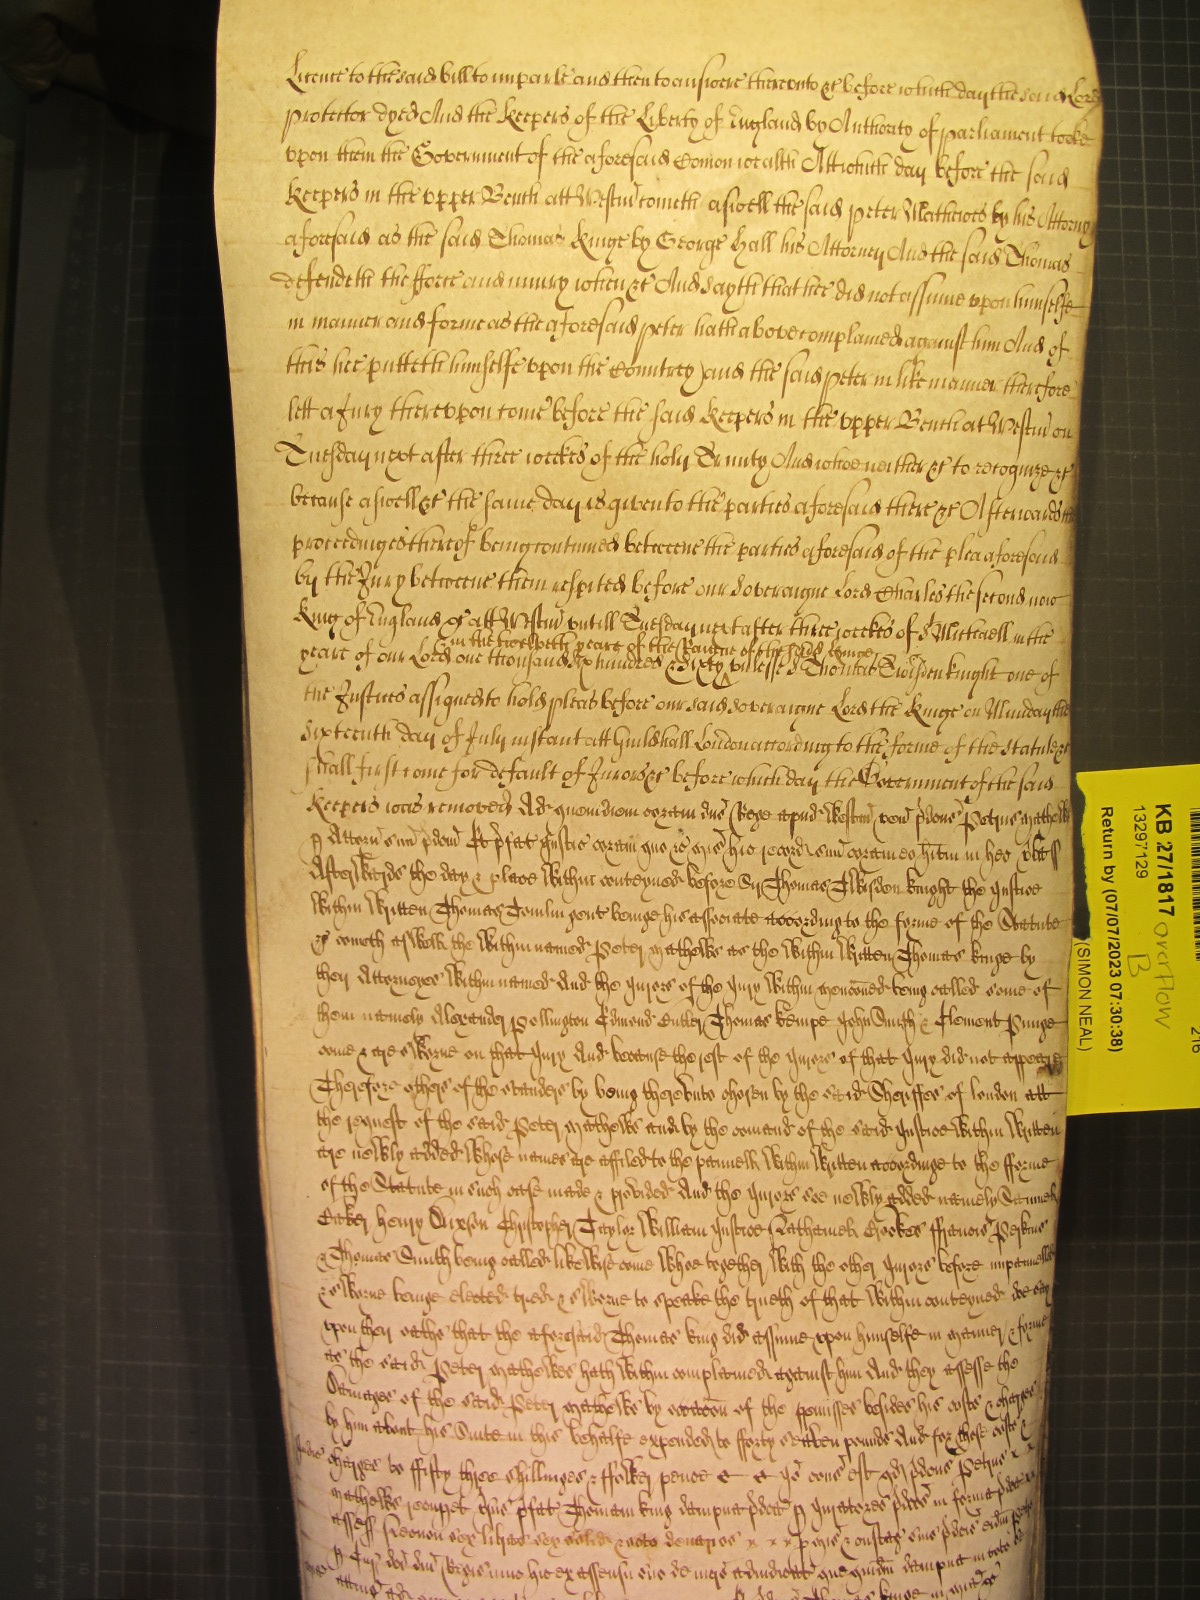 Licence to the said bill to imparle and then to answere thereunto &c before which day the said Lord
Protector dyed And the Keepers of the Liberty of England by Authority of Parliament tooke
upon them the Government of the aforesaid Comon wealth Att which day before the said
Keepers in the upper Bench att Westm cometh aswell the said Peter Mathewes by his Attorny
aforesaid as the said Thomas Kinge by George Hall his Attorney And the said Thomas
defendeth the fforce and iniury when &c And sayth that hee did not assume upon himselfe
in manner and forme as the aforesaid Peter hath above complained against him And of
this hee putteth himselfe upon the Countrey and the said Peter in like manner therefore
lett a Jury thereupon come before the said Keepers in the upper Bench att Westm on
Tuesday next after three weekes of the holy Trinity And who neither &c to recognize &c
because aswell &c the same day is given to the parties aforesaid there &c Afterwards the
proceedinges thereof being continued betweene the parties aforesaid of the plea aforesaid
by the Jury betweene them respited before our Soveraigne Lord Charles the second now
King of England &c att Westm untill Tuesday next after three weekes of St Michaell in the
in the twelveth yeare of the Raigne of the said Kinge
yeare of our Lord one thousand six hundred & sixty unlesse Sr Thomas Twisden knight one of
the Justices assigned to hold pleas before our said soveraigne Lord the Kinge on Munday the
sixteenth day of July instant att Guildhall London according to the forme of the statute &c
shall first come for default of Jurors &c before which day the Government of the said
Keepers was removed Ad quem diem coram dno Rege apud Westm ven pdcus Petrus Mathewes
p Attorn suu pdcm Et pfat Justic coram quo &c mis hic record suu coram eo hitm in hec verba ss
Afterwards the day & place within conteyned before Sr Thomas Twisden knight the Justice
within written Thomas Tomlin gent beinge his associate according to the forme of the Statute
&c cometh aswell the within named Peter Mathewes as the within written Thomas kinge by
their Attorneyes within named And the Jurors of the Jury within menconed being called some of
them namely Alexander Pollington Edmond Butler Thomas kempe John Smith & Clement Punge
come & are sworne on that Jury And because the rest of the Jurors of that Jury did not appeare
Therefore others of the standers by being thereunto chosen by the said Sheriffes of London att
the request of the said Peter Mathewes and by the comand of the said Justice within written
are newly added whose names are affiled to the pannell within written accordinge to the fforme
of the Statute in such case made & provided And the Jurors soe newly added namely Samuel
Baker Henry Dixson Christopher Taylor William Justice Nathaniell Crookes ffrancis Perkins
& Thomas Smith being called likewise come whoe together with the other Jurors before impannelled
& sworne beinge elected tryed & sworne to speake the trueth of that within conteyned doe say
upon their oathe that the aforesaid Thomas king did assume upon himselfe in manner & forme
as the said Peter Mathewes hath within complained against him And they assesse the
Damages of the said Peter Mathewes by occacon of the premisses besides his costs & charges
by him about his Suite in this behalfe expended to fforty seaven pounds And for those costs &
charges to ffifty three shillinges & ffower pence & & Io cons est qd pdcus Petrus
Mathewes recupet versus pfat Thomam king dampna pdca p Juratores pdcos in forma pdca
assess necnon sex libras sex solid & octo denarios p mis & custag suis pdcis eidm Petro
p Cur dci dni Regis nunc hic ex assensu suo de incro adiudicat que quidm dampna in toto
KB 27/1817 overflow
B
13297129
Return by (07/07/2023 07:30:38)
(SIMON NEAL)